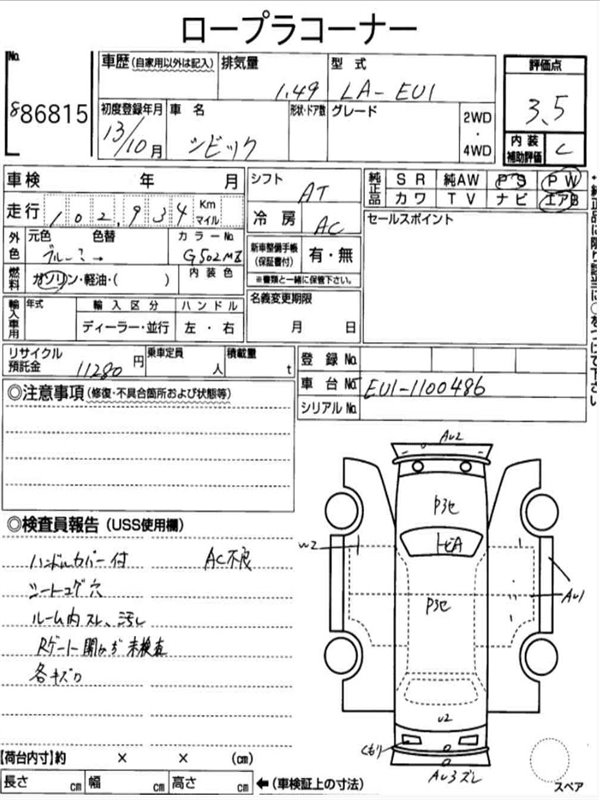 ロープラコーナー
No.
886815
車歴(自家用以外は記入) 排気量 型式
1.49 LA-EU1
初度登録年月 車名 形状・ドア数 グレード 2WD・4WD
13/10月 シビック
評価点
3.5
内装補助評価 C
車検 年 月
シフト AT
純正品 SR 純AW PS PW
カワ TV ナビ エアB
走行 102,934 Km マイル
冷房 AC
セールスポイント
外色 元色 色替 カラーNo
ブルー ? → G502M
新車整備手帳(保証書付) 有・無
※書類と一緒に保管下さい。
燃料 ガソリン・軽油・( ) 内装色
輸入車用 年式 輸入区分 ハンドル
ディーラー・並行 左・右
名義変更期限
月 日
リサイクル預託金 11280円 乗車定員 人 積載量 t
登録No.
車台No. EU1-1100486
シリアルNo.
◎注意事項(修復・不具合箇所および状態等)
◎検査員報告(USS使用欄)
ハンドルカバー付 AC不良
シートコゲ穴
ルーム内スレ、汚レ
Rゲート開かず未検査
各キズ
AU2
P3セ
トビA
W2
P3セ
AU1
U2
くもり
AU3ズレ
スペア
【荷台内寸】約 × × (cm)
長さ cm 幅 cm 高さ cm ←(車検証上の寸法)